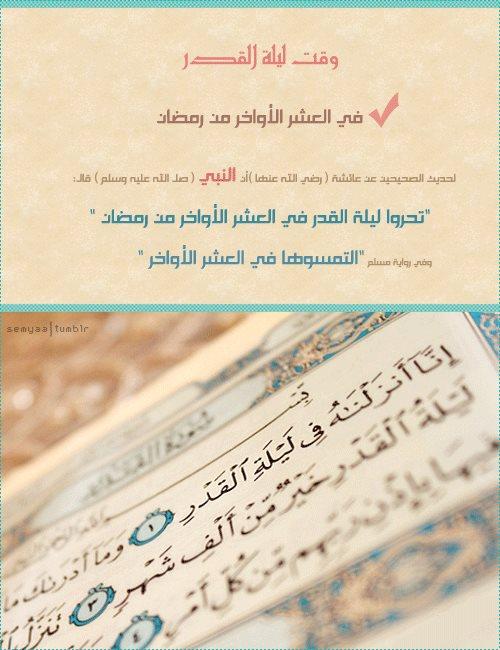 وقت ليلة القدر
في العشر الأواخر من رمضان
لحديث الصحيحين عن عائشة ( رضي الله عنها )أن النبي ( صلـ الله عليه وسلم ) قال:
"تحروا ليلة القدر في العشر الأواخر من رمضان "
وفي رواية مسلم "التمسوها في العشر الأواخر "
semyaa|tumblr
إِنَّا أَنزَلْنَٰهُ فِى لَيْلَةِ ٱلْقَدْرِ ١ وَمَا أَدْرَىٰكَ مَا
لَيْلَةُ ٱلْقَدْرِ خَيْرٌ مِّنْ أَلْفِ شَهْرٍ ٣ تَنَزَّلُ
فِيهَا بِإِذْنِ رَبِّهِم مِّن كُلِّ أَمْرٍ ٤